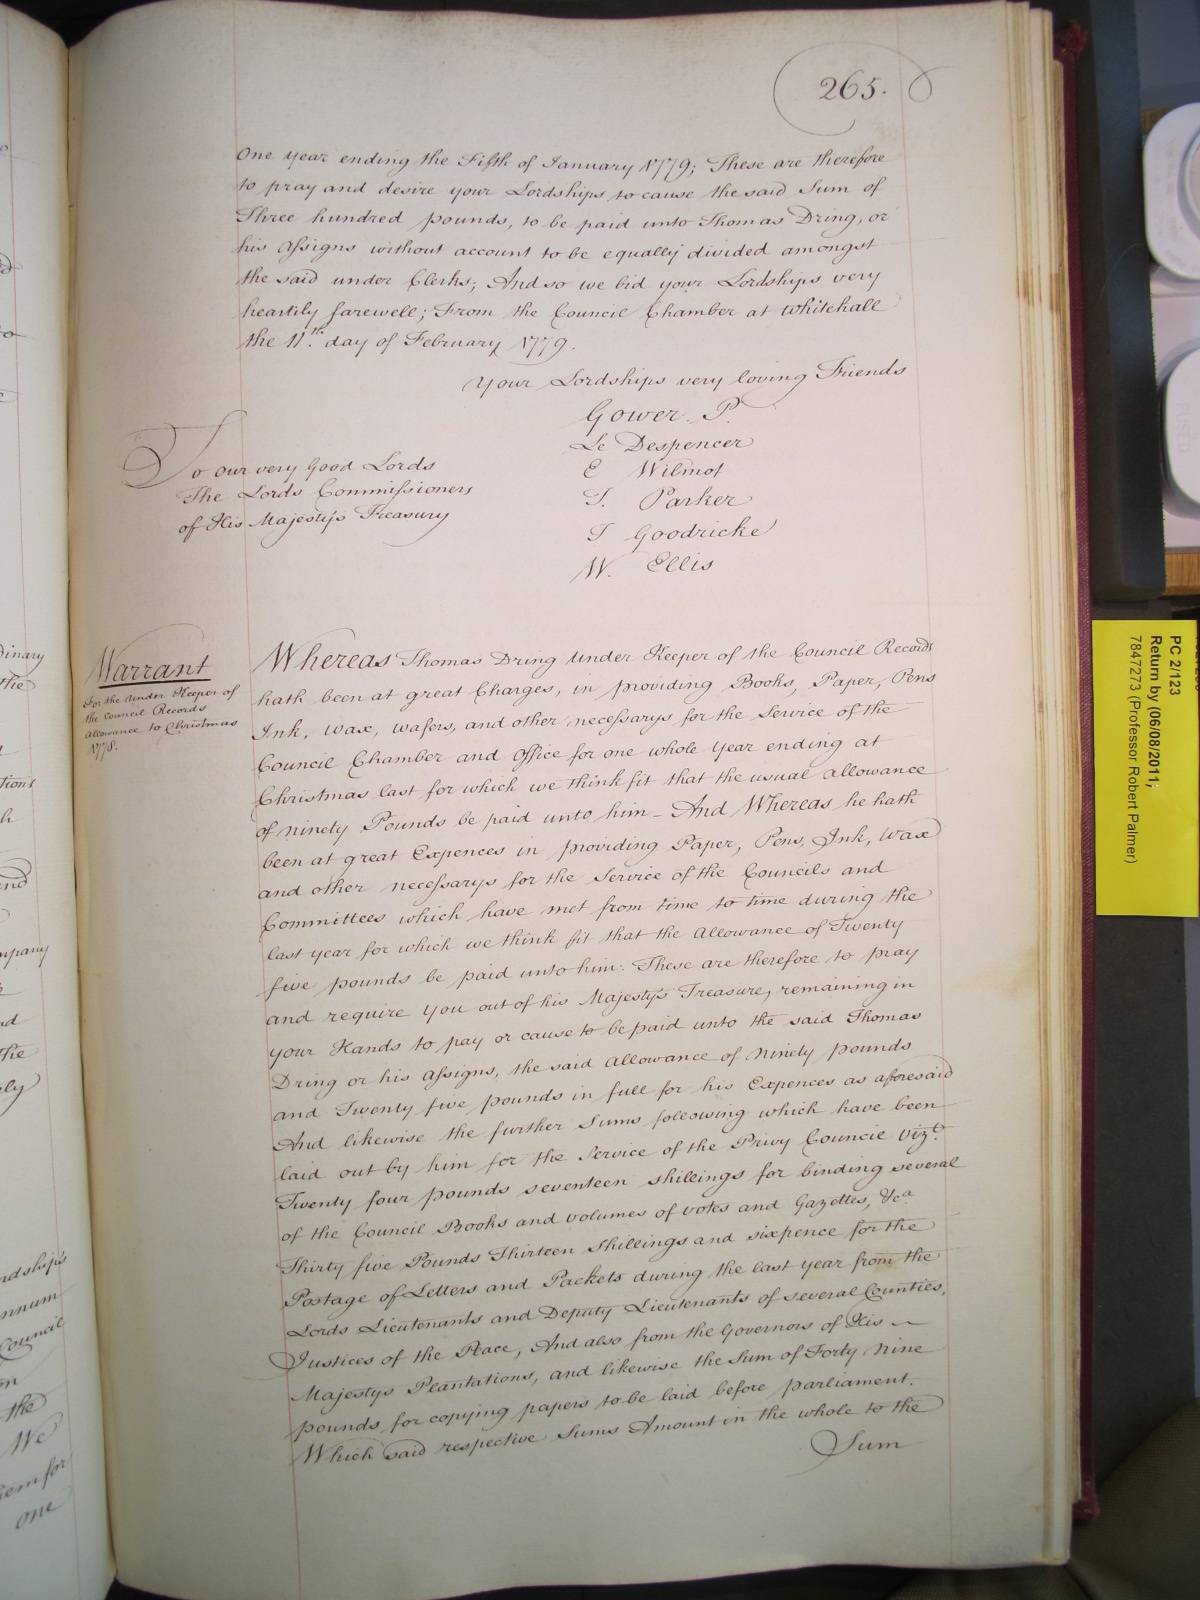 265.
One year ending the Fifth of January 1779; These are therefore
to pray and desire your Lordships to cause the said Sum of
Three hundred pounds, to be paid unto Thomas Dring, or
his Assigns without account to be equally divided amongst
the said under Clerks; And so we bid your Lordships very
heartily farewell; From the Council Chamber at Whitehall
the 11.th day of February 1779.
Your Lordships very loving Friends
Gower. P.
Le Despencer
E Wilmot
T. Parker
J Goodricke
W. Ellis
To our very Good Lords
The Lords Commissioners
of His Majesty's Treasury
Warrant
For the Under Keeper of
the Council Records
Allowance to Christmas
1778.
Whereas Thomas Dring Under Keeper of the Council Records
hath been at great Charges, in providing Books, Paper, Pens
Ink, Wax, Wafers, and other necessarys for the Service of the
Council Chamber and Office for one whole Year ending at
Christmas last for which we think fit that the usual allowance
of ninety Pounds be paid unto him – And Whereas he hath
been at great Expences in providing Paper, Pens, Ink, Wax
and other necessarys for the Service of the Councils and
Committees which have met from time to time during the
last year for which we think fit that the Allowance of Twenty
five pounds be paid unto him: These are therefore to pray
and require You out of his Majesty's Treasure, remaining in
your Hands to pay or cause to be paid unto the said Thomas
Dring or his Assigns, the said Allowance of Ninety pounds
and Twenty five pounds in full for his Expences as aforesaid
And likewise the further Sums following which have been
laid out by him for the Service of the Privy Council vizt.
Twenty four pounds seventeen shillings for binding several
of the Council Books and volumes of votes and Gazettes, &ca
Thirty five Pounds Thirteen Shillings and sixpence for the
Postage of Letters and Packets during the last year from the
Lords Lieutenants and Deputy Lieutenants of several Counties,
Justices of the Peace, And also from the Governors of His
Majestys Plantations, and likewise the Sum of Forty Nine
pounds for copying papers to be laid before parliament.
Which said respective Sums Amount in the whole to the
Sum
dinary
the
tions
and
mpany
nd
the
ely
dship's
nnum
Council
on
the
We
hem for
one
PC 2/123
Return by (06/08/2011;
7847273 (Professor Robert Palmer)